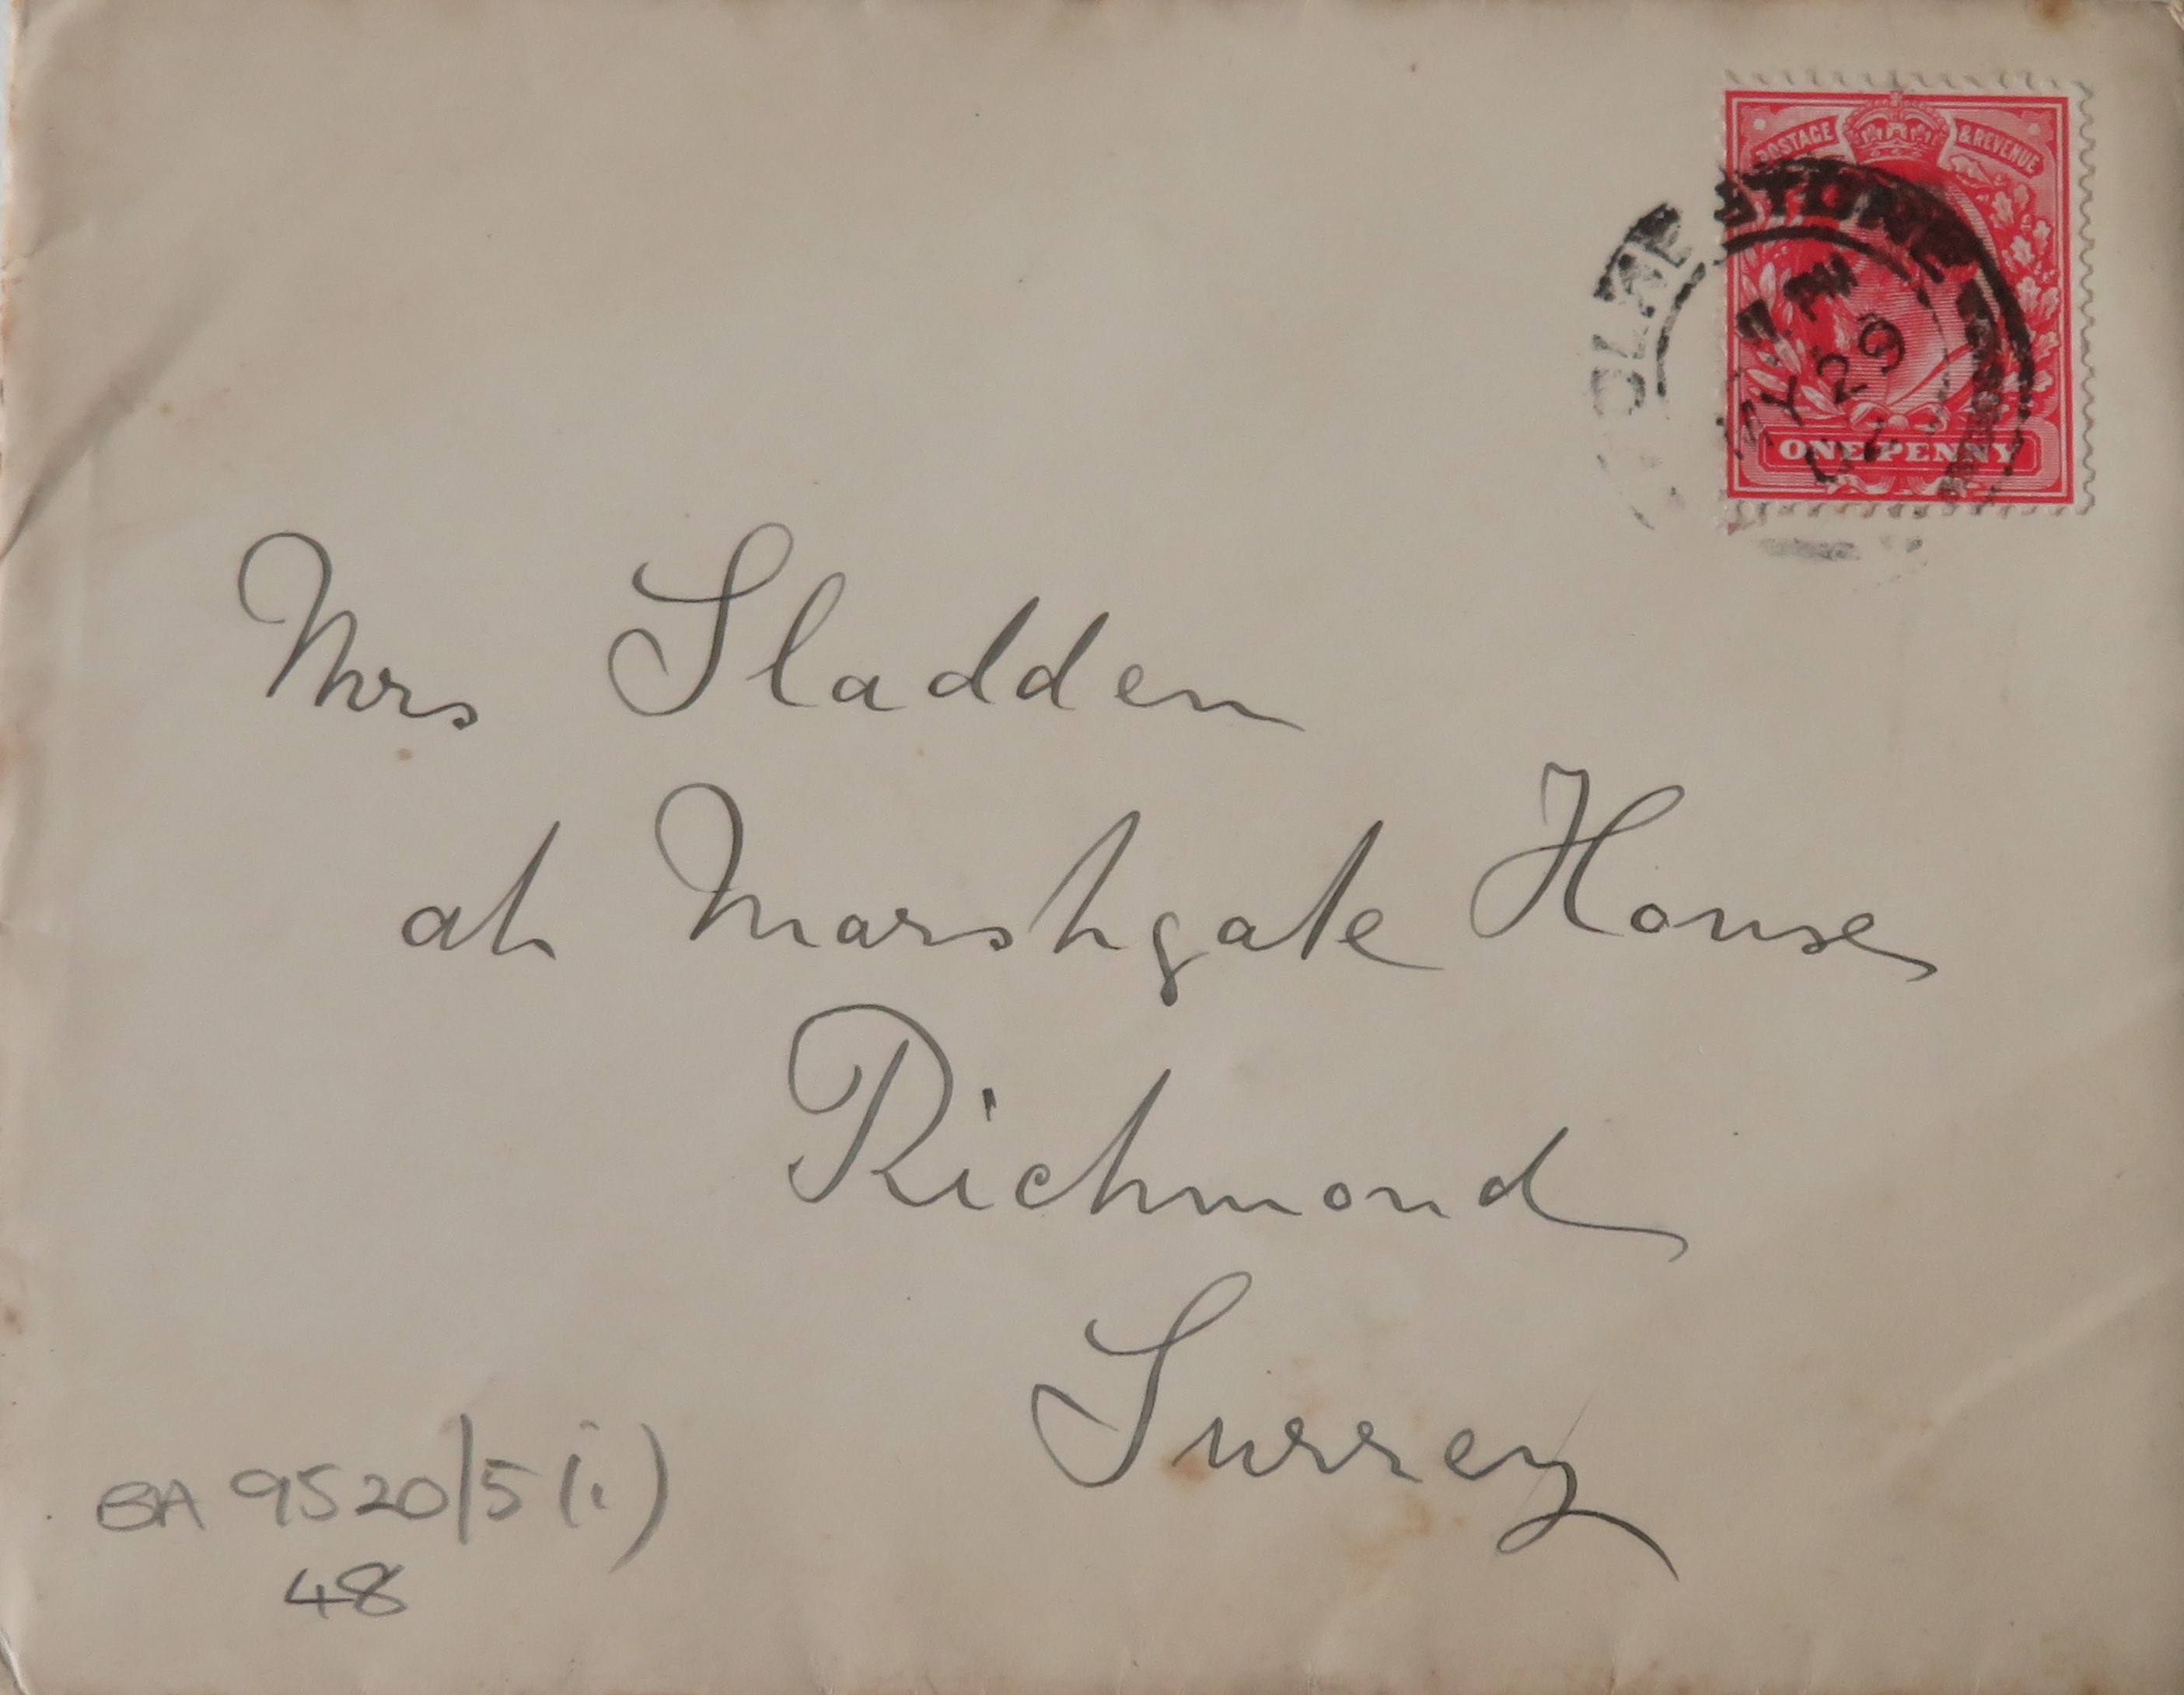 POSTAGE & REVENUE
7 PM
MY 29
ONE PENNY
Mrs Sladden
at Marshgate House
Richmond
Surrey
BA 9520/5(i)
48